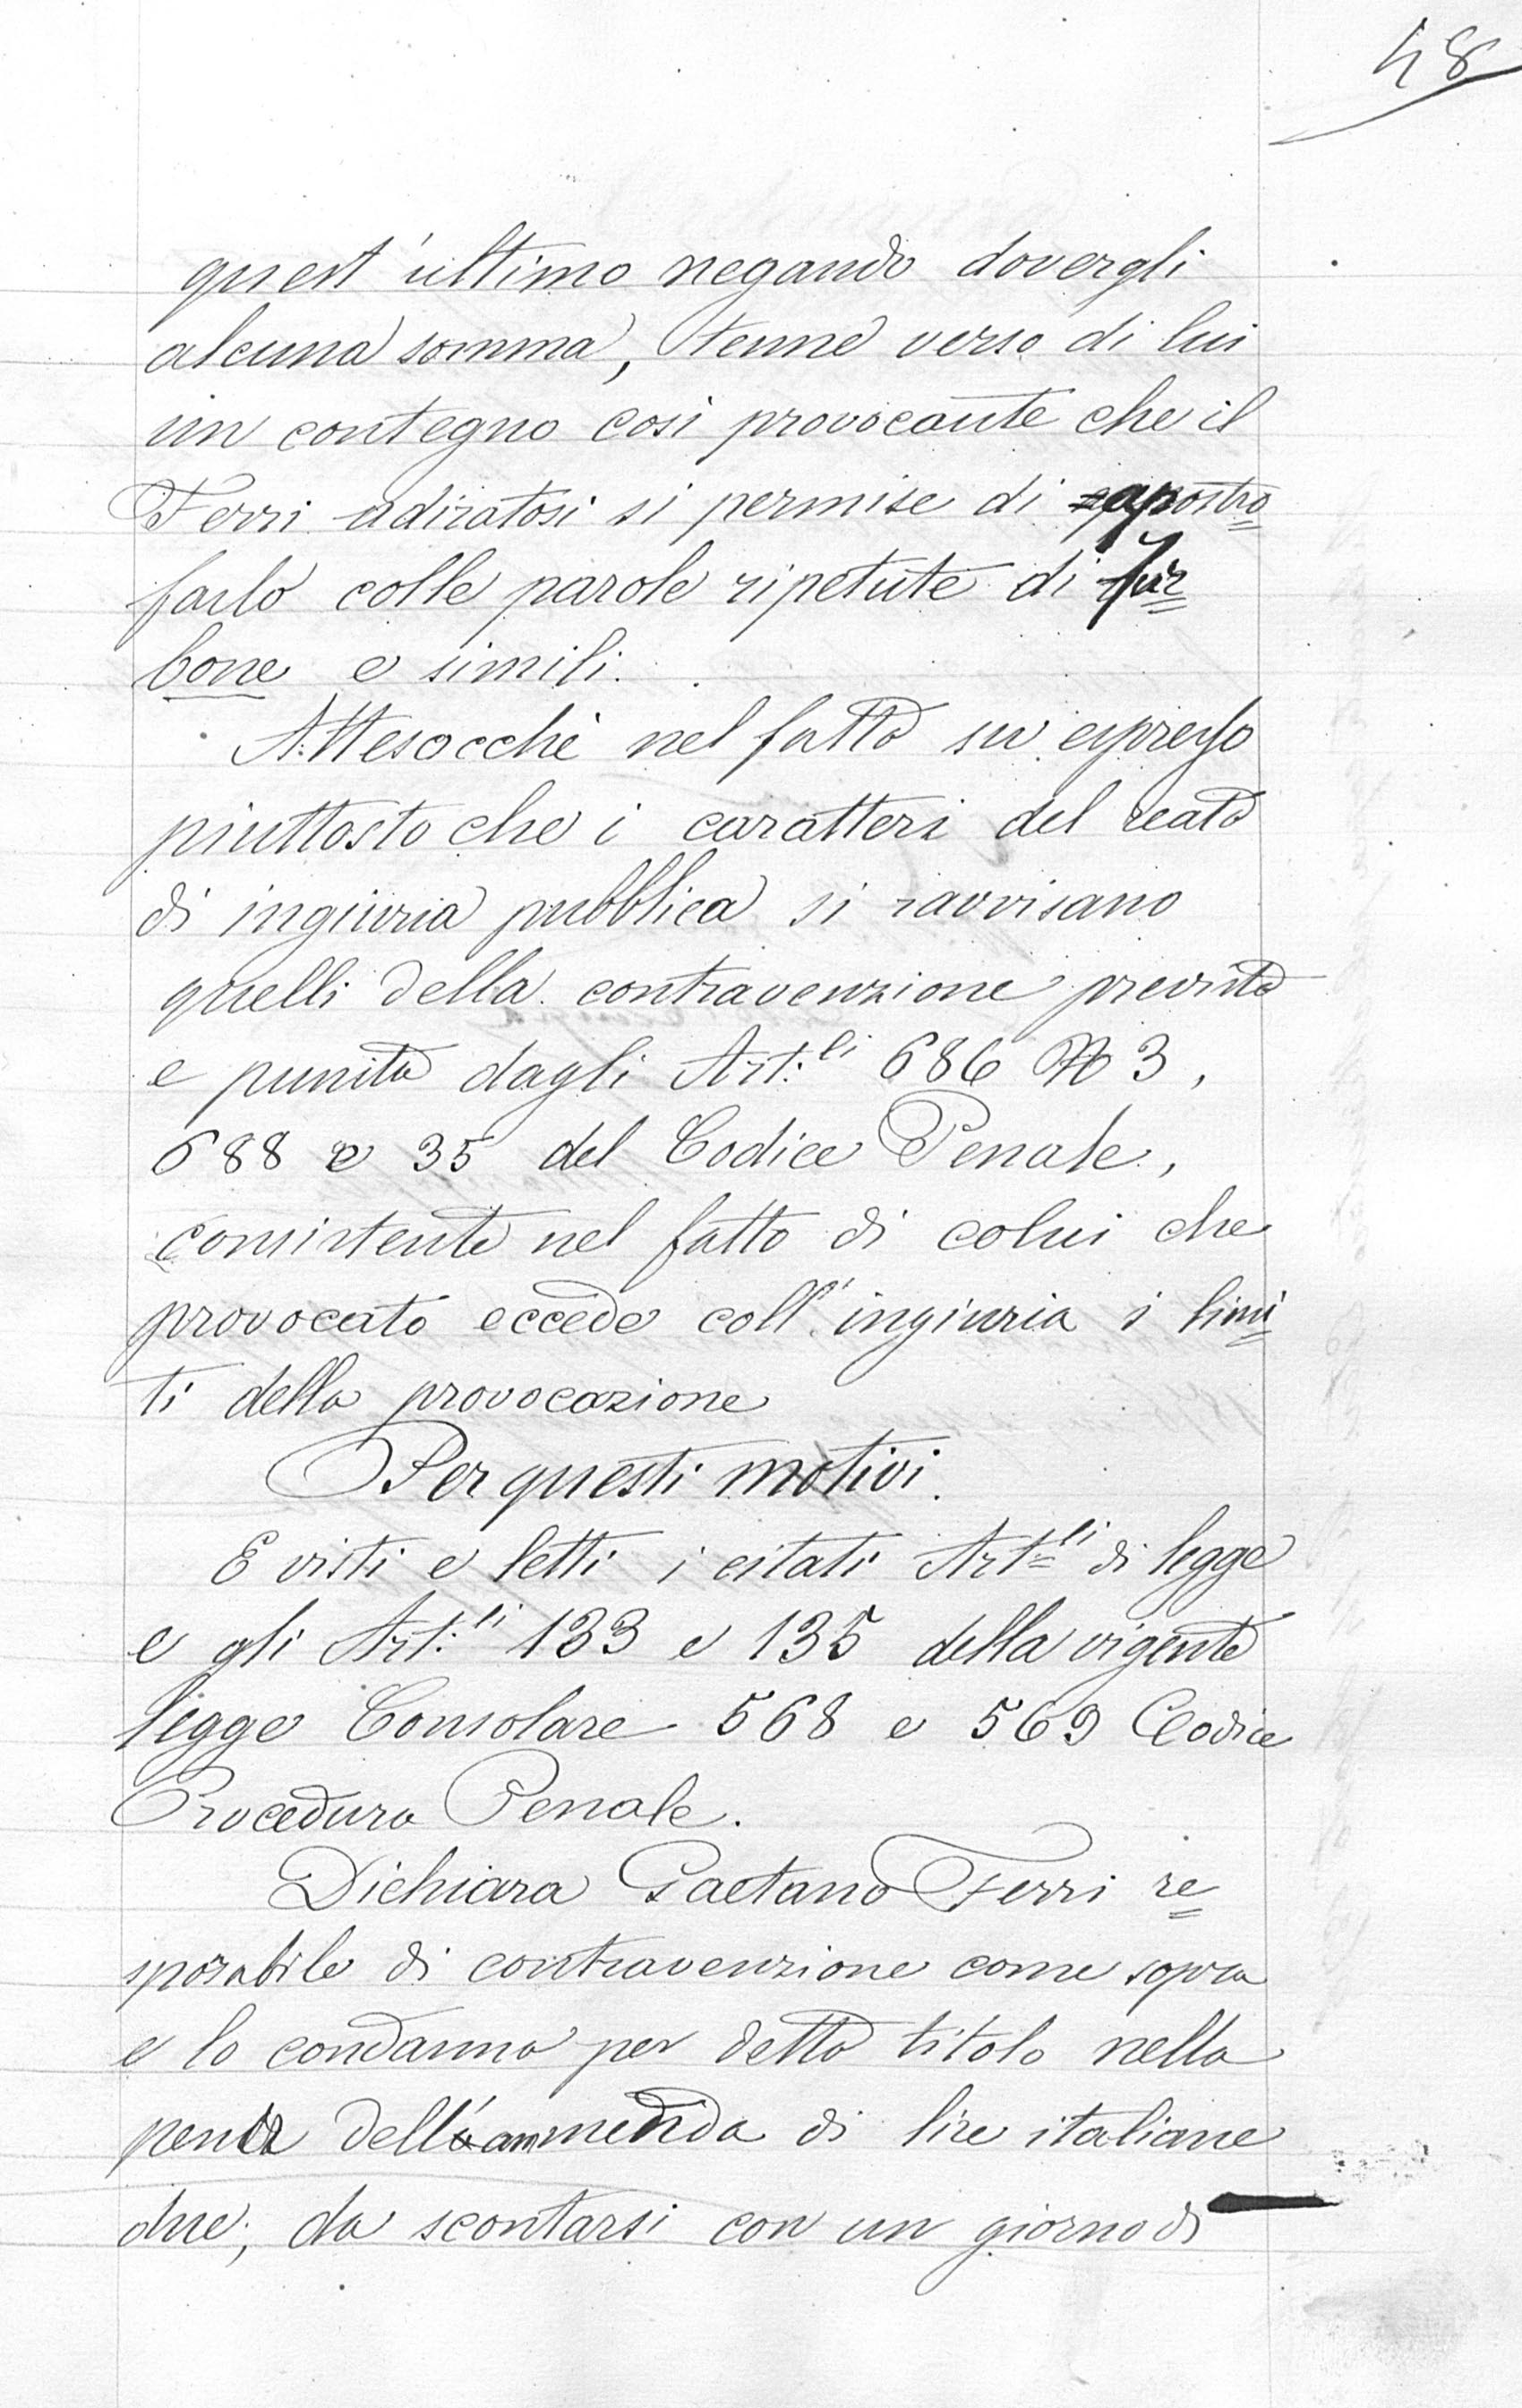 48
quest'ultimo negando dovergli
alcuna somma, tenne verso di lui
un contegno così provocante che il
Ferri adiratosi si permise di apostro=
farlo colle parole ripetute di fur=
bone e simili.
Attesocchè nel fatto su espresso
piuttosto che i caratteri del reato
di ingiuria pubblica si ravvisano
quelli della contravenzione prevista
e punita dagli Art:li 686 N 3,
688 e 35 del Codice Penale,
consistente nel fatto di colui che
provocato eccede coll'ingiuria i limi=
ti della provocazione
Per questi motivi.
E visti e letti i citati Art=li di legge
e gli Art:li 133 e 135 della vigente
legge Consolare 568 e 569 Codice
Procedura Penale.
Dichiara Gaetano Ferri re=
sposabile di contravenzione come sopra
e lo condanna per detto titolo nella
pena dell'ammenda di lire italiane
due; da scontarsi con un giorno di